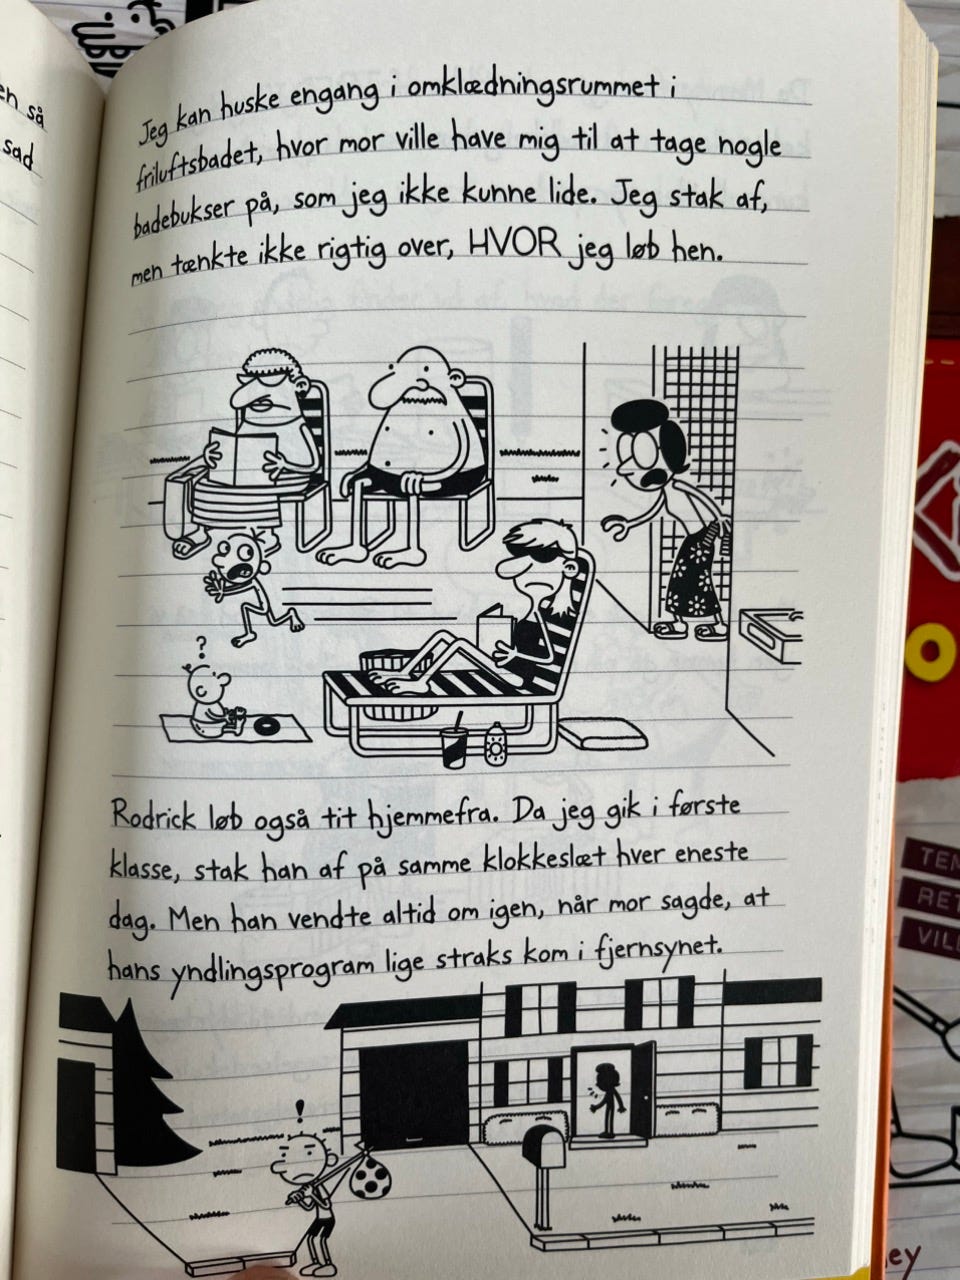 en så
sad
Jeg kan huske engang i omklædningsrummet i
friluftsbadet, hvor mor ville have mig til at tage nogle
badebukser på, som jeg ikke kunne lide. Jeg stak af,
men tænkte ikke rigtig over, HVOR jeg løb hen.
?
Rodrick løb også tit hjemmefra. Da jeg gik i første
klasse, stak han af på samme klokkeslæt hver eneste
dag. Men han vendte altid om igen, når mor sagde, at
hans yndlingsprogram lige straks kom i fjernsynet.
!
TEM
RET
VILD
ey